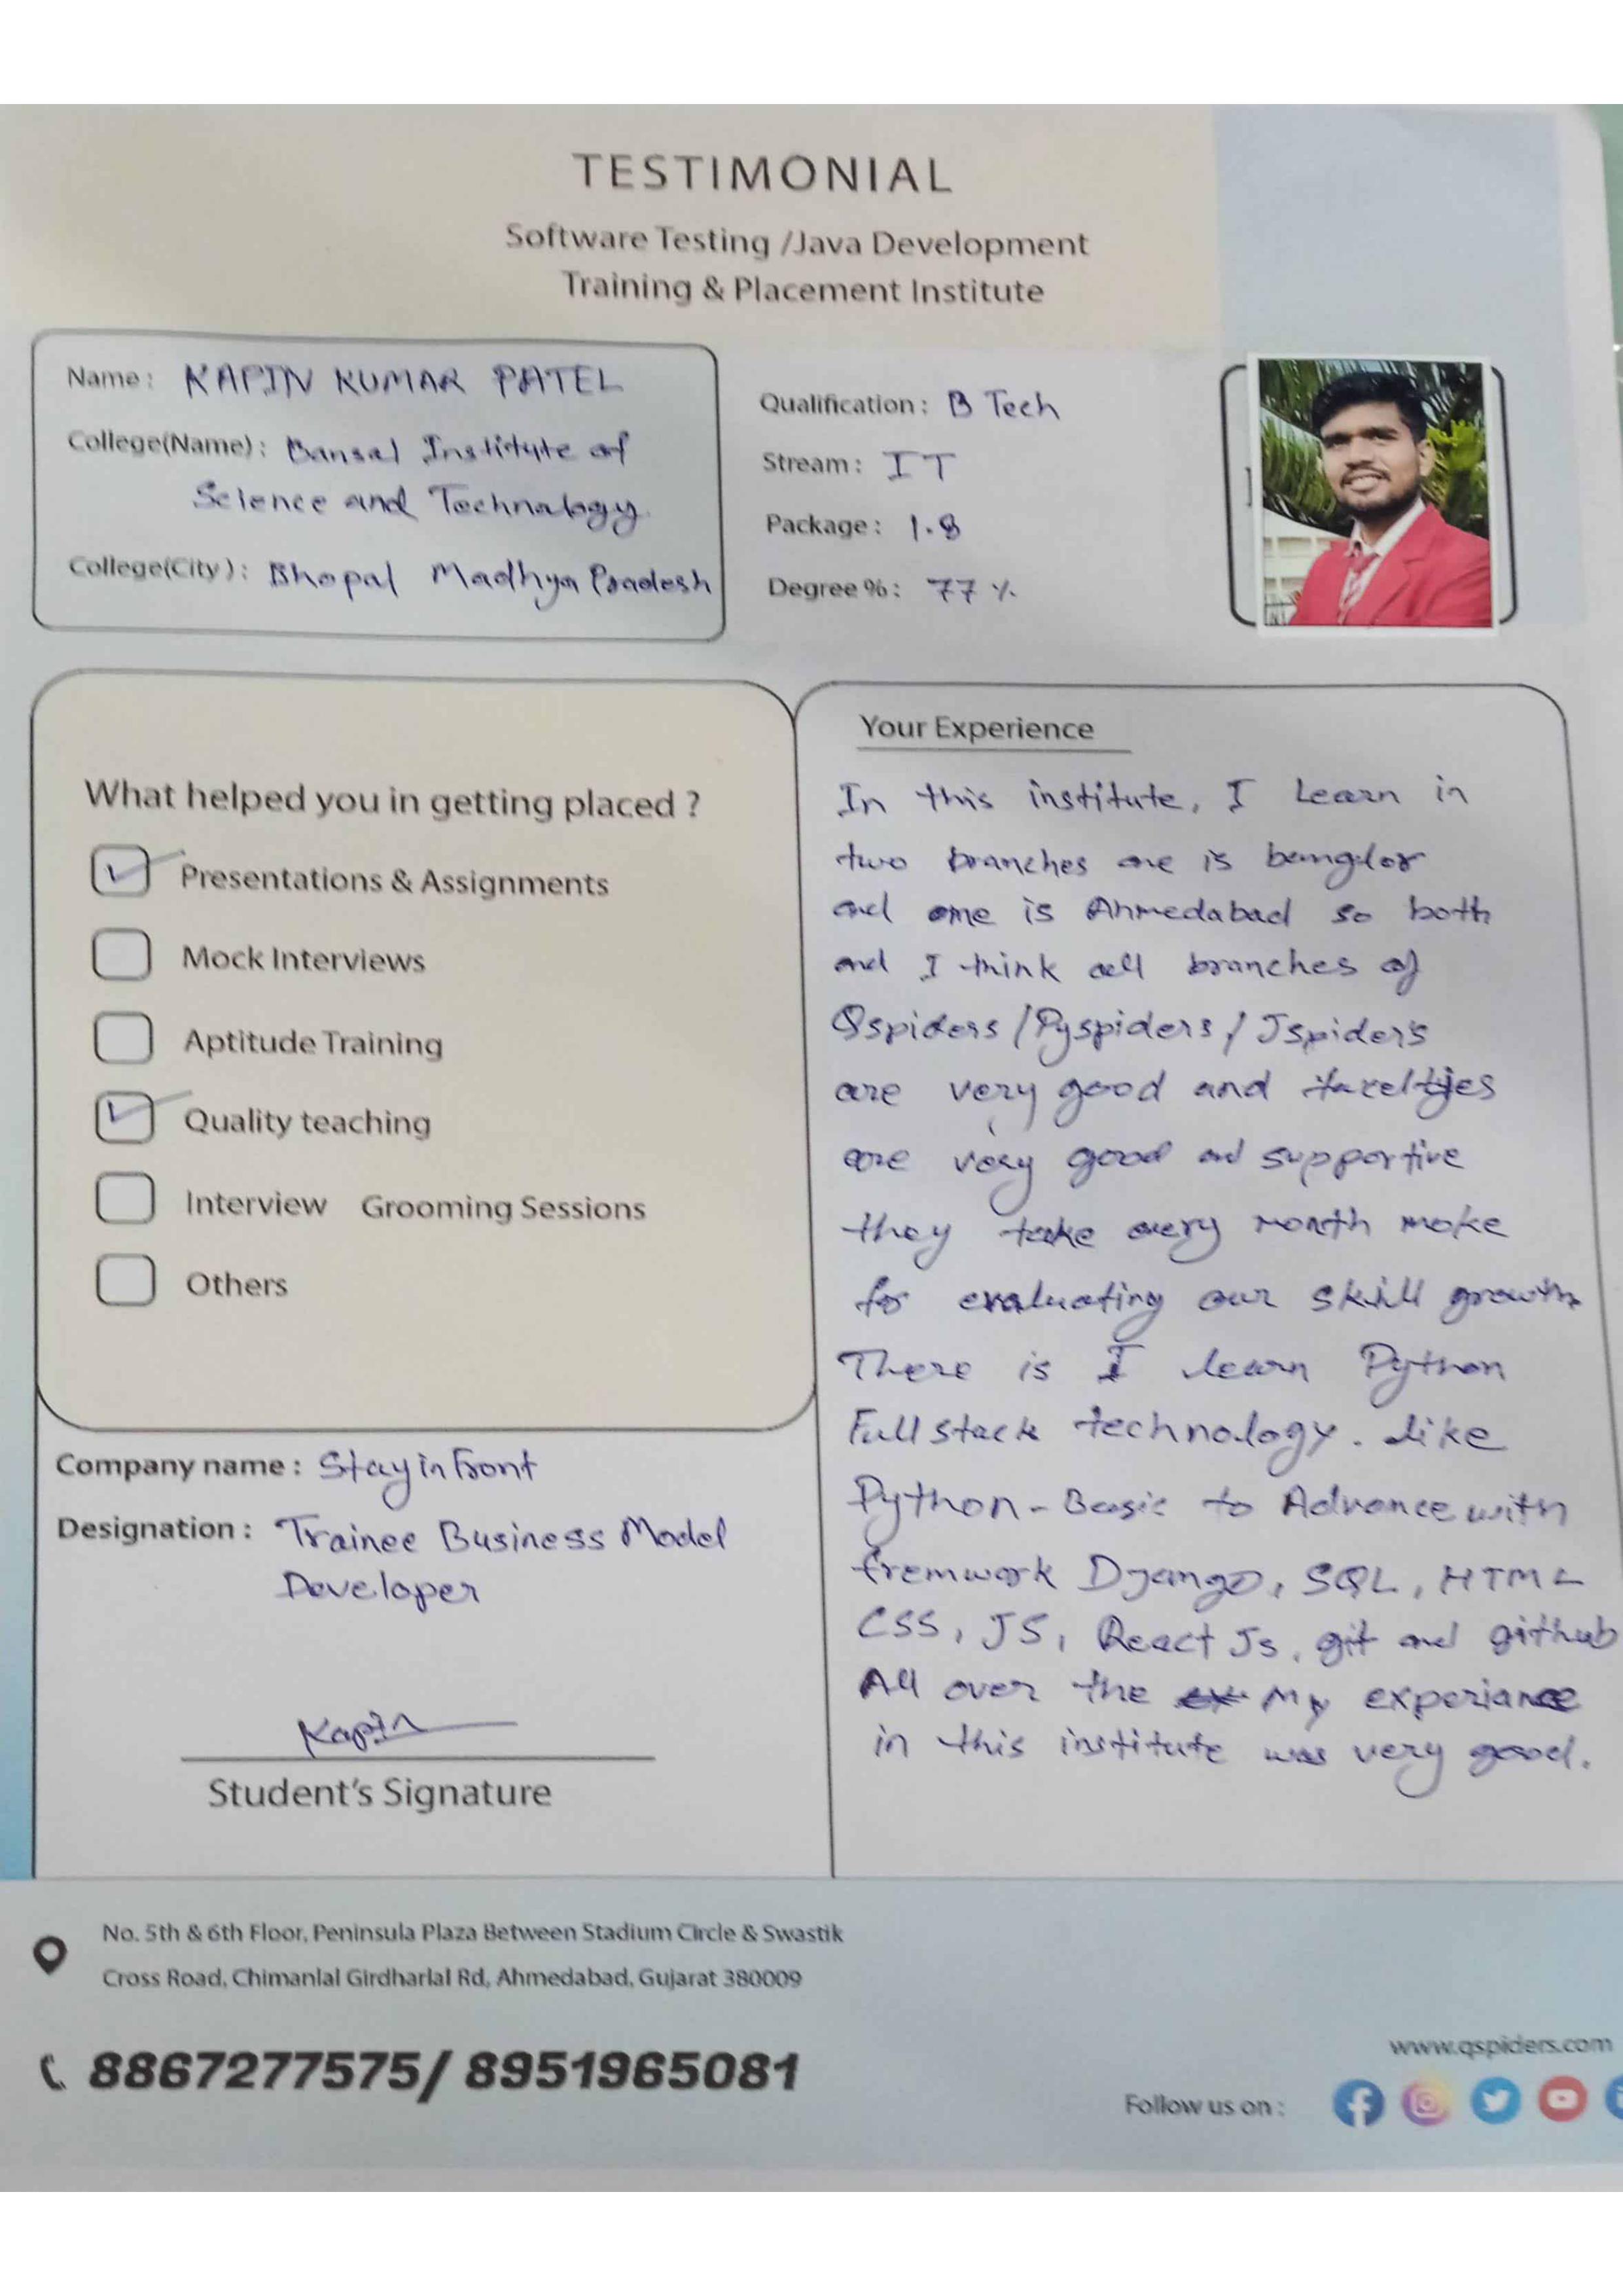 TESTIMONIAL
Software Testing /Java Development
Training & Placement Institute
Name : KAPIN KUMAR PATEL
College(Name) : Bansal Institute of
Science and Technology
College(City) : Bhopal Madhya Pradesh
Qualification : B Tech
Stream : IT
Package : 1.8
Degree % : 77 %
What helped you in getting placed ?
Presentations & Assignments
Mock Interviews
Aptitude Training
Quality teaching
Interview Grooming Sessions
Others
Company name : Stay in Front
Designation : Trainee Business Model
Developer
Kapin
Student's Signature
Your Experience
In this institute, I Learn in
two branches one is bangdor
and one is Ahmedabad so both
and I think all branches of
Qspiders / Pyspiders / Jspiders
are very good and
are very good and supportive
they take every month moke
for evaluating our skill growth
There is I learn Python
Full stack technology. Like
Python - Basic to Advance with
fremwork Django, SQL, HTML
CSS, JS, React Js, git and github
All over the My experiance
in this institute was very good.
No. 5th & 6th Floor, Peninsula Plaza Between Stadium Circle & Swastik
Cross Road, Chimanlal Girdharlal Rd, Ahmedabad, Gujarat 380009
8867277575/ 8951965081
www.qspiders.com
Follow us on :